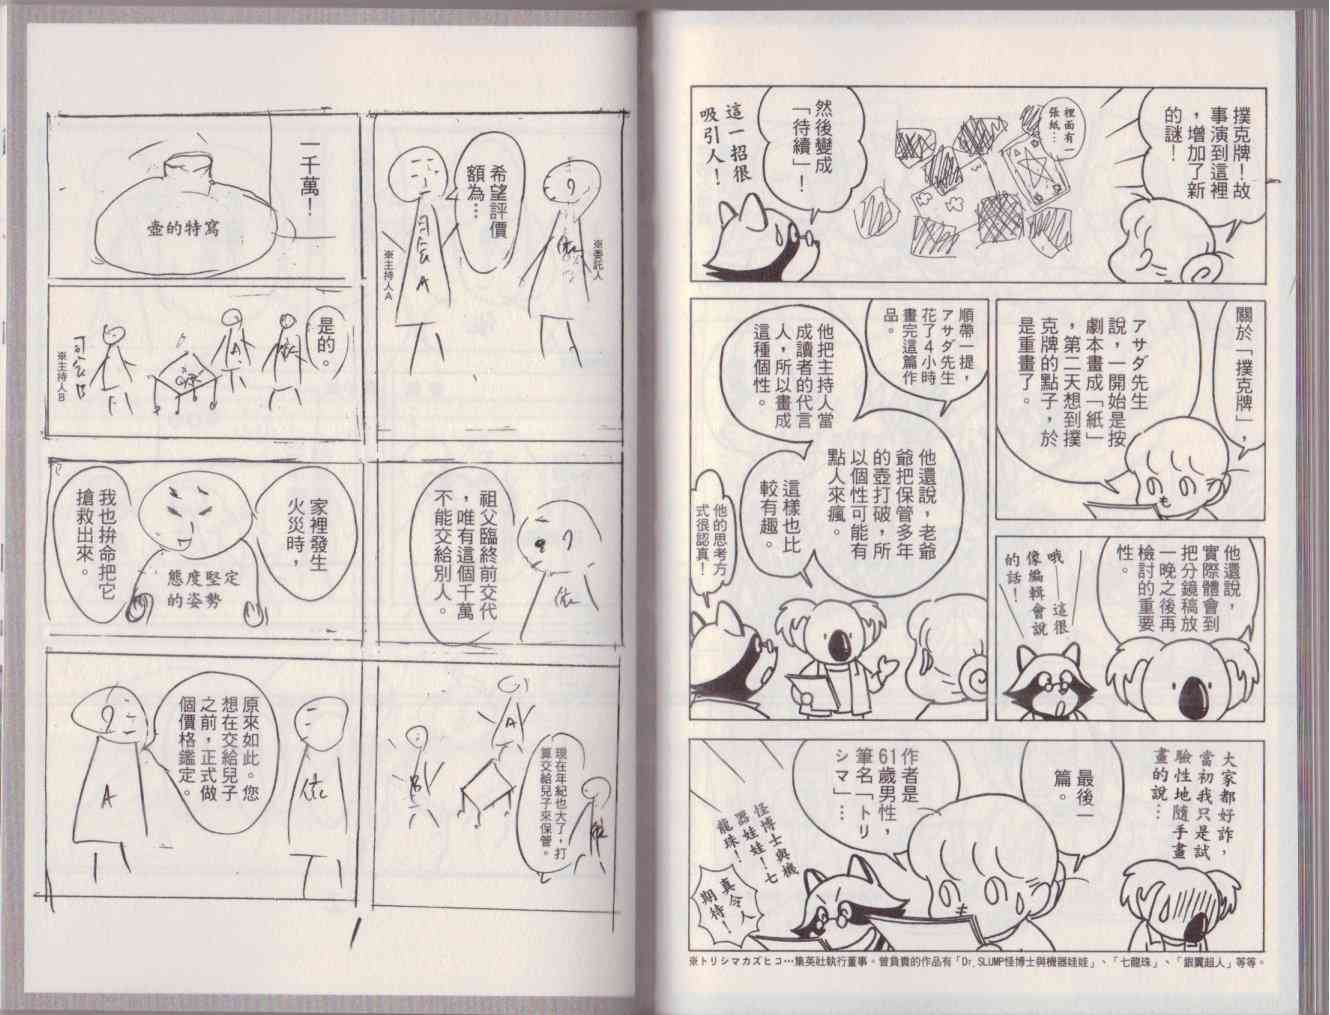 撲克牌！故
事演到這裡
，增加了新
的謎！
裡面有一
張紙…
然後變成
「待續」！
這一招很
吸引人！
關於「撲克牌」，
アサダ先生
說，一開始是按
劇本畫成「紙」
，第二天想到撲
克牌的點子，於
是重畫了。
他還說，
實際體會到
把分鏡稿放
一晚之後再
檢討的重要
性。
哦——這很
像編輯會說
的話！
順帶一提，
アサダ先生
花了4小時
畫完這篇作
品。
他把主持人當
成讀者的代言
人，所以畫成
這種個性。
他還說，老爺
爺把保管多年
的壺打破，所
以個性可能有
點人來瘋。
這樣也比
較有趣。
他的思考方
式很認真！
大家都好詐，
當初我只是試
驗性地隨手畫
畫的說…
最後一
篇。
作者是
61歲男性，
筆名「トリ
シマ」…
怪博士與機
器娃娃！七
龍珠！
真令人
期待！
※トリシマカズヒコ…集英社執行董事。曾負責的作品有「Dr. SLUMP怪博士與機器娃娃」、「七龍珠」、「銀翼超人」等等。
※委託人
依
希望評價
額為…
司会A
※主持人A
一千萬！
壺的特寫
是的。
依
A
司会B
※主持人B
祖父臨終前交代
，唯有這個千萬
不能交給別人。
依
家裡發生
火災時，
態度堅定
的姿勢
我也拚命把它
搶救出來。
現在年紀也大了，打
算交給兒子來保管。
依
A
B
依
原來如此。您
想在交給兒子
之前，正式做
個價格鑑定。
A
1